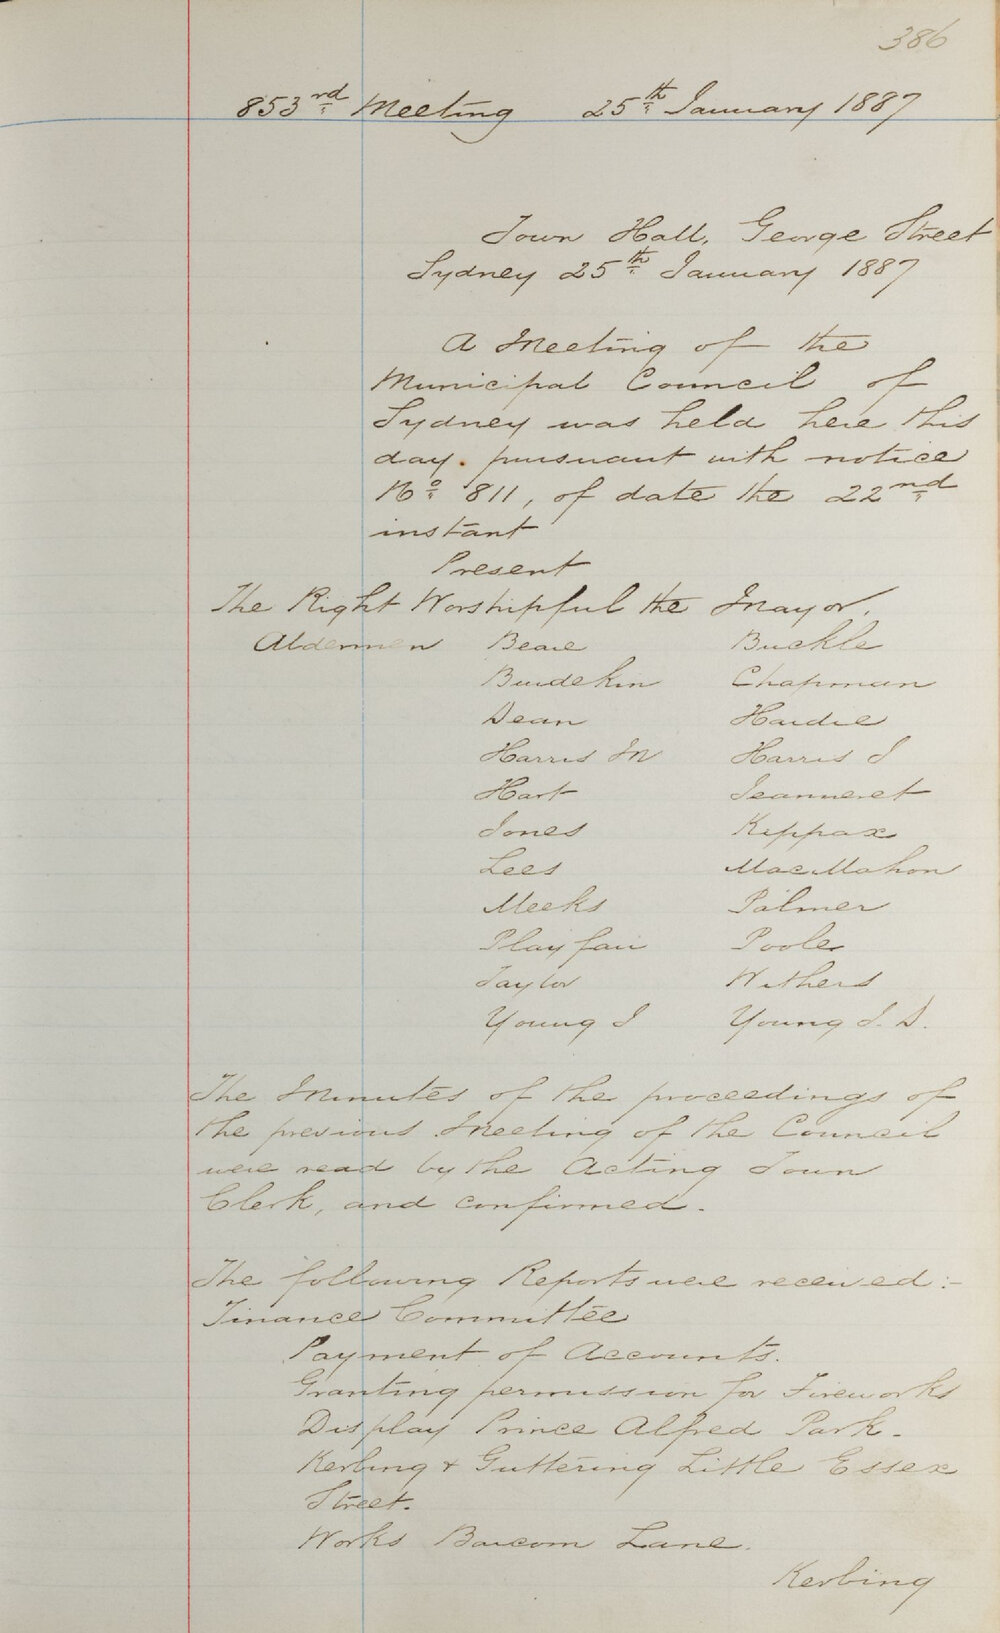 386
853rd Meeting 25th January 1887
Town Hall, George Street
Sydney 25th January 1887
A Meeting of the
Municipal Council of
Sydney was held here this
day. pursuant with notice
No 811, of date the 22nd
instant
Present
The Right Worshipful the Mayor.
Aldermen Beare Buckle
Burdekin Chapman
Dean Hardie
Harris M Harris J
Hart Jeanneret
Jones Kippax
Lees MacMahon
Meeks Palmer
Playfair Poole
Taylor Withers
Young J Young J. D.
The Minutes of the proceedings of
the previous Meeting of the Council
were read by the Acting Town
Clerk, and confirmed.
The following Reports were received:-
Finance Committee
Payment of Accounts.
Granting permission for Fireworks
Display Prince Alfred Park.
Kerbing & Guttering Little Essex
Street.
Works Barcom Lane.
Kerbing